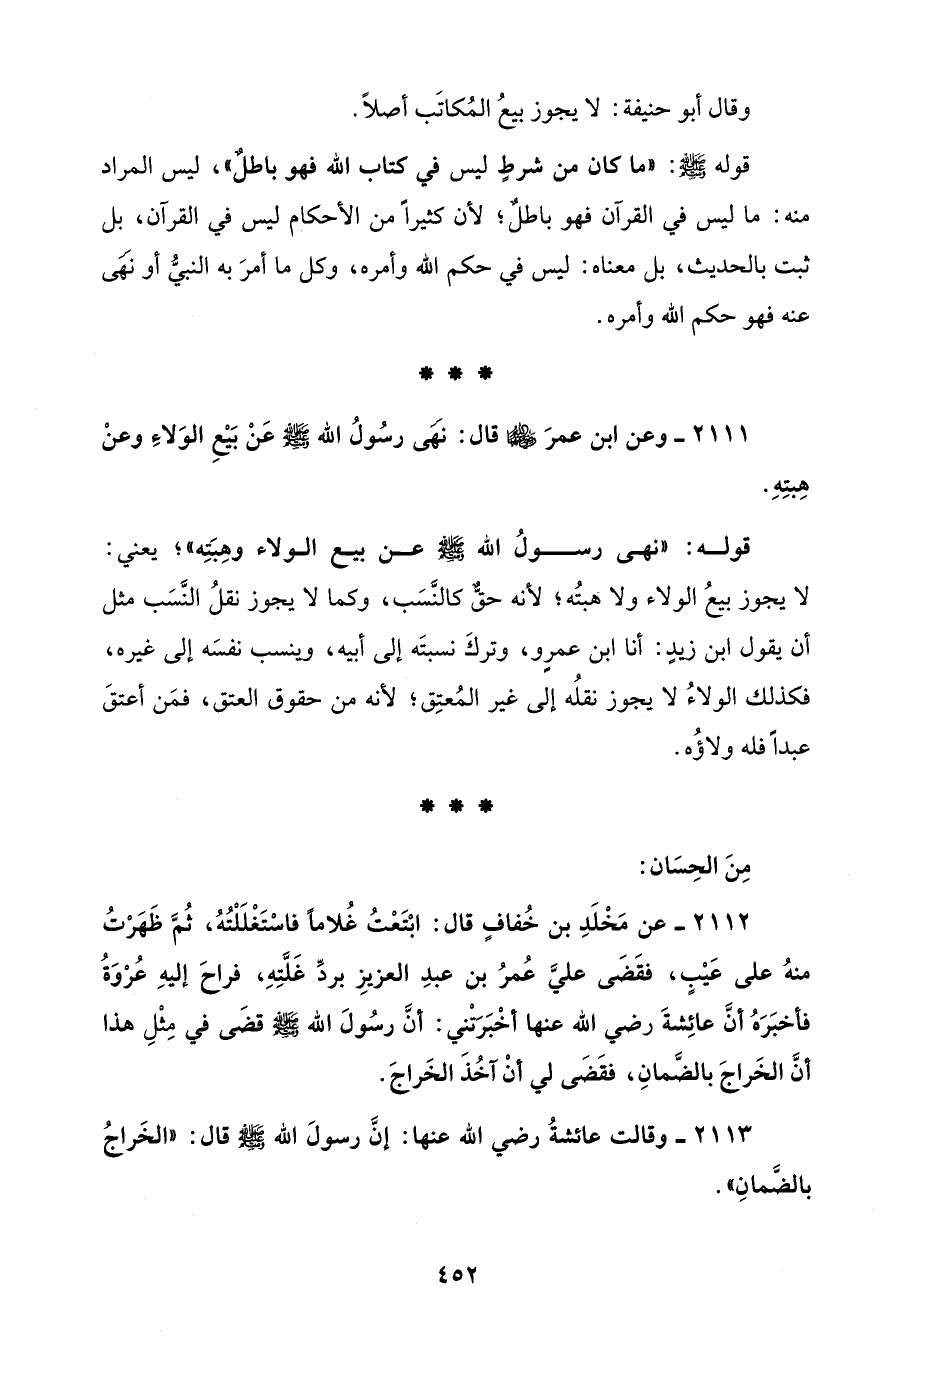 وقال أبو حنيفة: لا يجوز بيعُ المُكاتَب أصلاً.
قوله ﷺ: «ما كان من شرطٍ ليس في كتاب الله فهو باطلٌ»، ليس المراد
منه: ما ليس في القرآن فهو باطلٌ؛ لأن كثيراً من الأحكام ليس في القرآن، بل
ثبت بالحديث، بل معناه: ليس في حكم الله وأمره، وكل ما أمرَ به النبيُّ أو نهَى
عنه فهو حكم الله وأمره.
* * *
٢١١١ ـ وعن ابن عمرَ ﵄ قال: نهَى رسُولُ الله ﷺ عَنْ بَيْعِ الوَلاءِ وعنْ
هِبتِهِ.
قولـه: «نهـى رسـولُ الله ﷺ عـن بيـع الـولاء وهِبَتِه»؛ يعني:
لا يجوز بيعُ الولاء ولا هبتُه؛ لأنه حقٌّ كالنَّسَب، وكما لا يجوز نقلُ النَّسَب مثل
أن يقول ابن زيدٍ: أنا ابن عمرٍو، وتركَ نسبتَه إلى أبيه، وينسب نفسَه إلى غيره،
فكذلك الولاءُ لا يجوز نقلُه إلى غير المُعتِق؛ لأنه من حقوق العتق، فمَن أعتقَ
عبداً فله ولاؤُه.
* * *
مِنَ الحِسَان:
٢١١٢ ـ عن مَخْلَدِ بن خُفافٍ قال: ابْتَعْتُ غُلاماً فاسْتَغْلَلْتُهُ، ثُمَّ ظَهَرْتُ
منهُ على عَيْبٍ، فقَضَى عليَّ عُمرُ بن عبدِ العزيزِ بردِّ غَلَّتِهِ، فراحَ إليهِ عُرْوَةُ
فأخبَرَهُ أنَّ عائِشةَ رضي الله عنها أخْبَرَتْني: أنَّ رسُولَ الله ﷺ قضَى في مِثْلِ هذا
أنَّ الخَراجَ بالضَّمانِ، فقَضَى لي أنْ آخُذَ الخَراجَ.
٢١١٣ ـ وقالت عائشةُ رضي الله عنها: إنَّ رسولَ الله ﷺ قال: «الخَراجُ
بالضَّمانِ».
٤٥٢